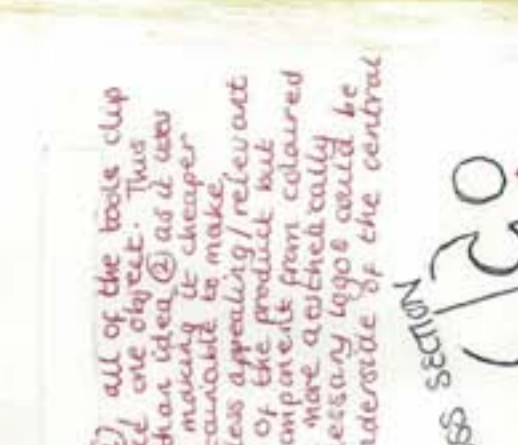 all of the tools clip
one object. This
than idea ② as it uses
making it cheaper
to make
less appealing/relevant
of the product but
component from coloured
more aesthetically
logos could be
underside of the central
SECTION